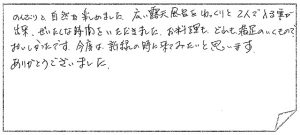 のんびりと自然を楽しめました。広い露天風呂をゆっくりと2人で入る事が
出来、ぜいたくな時間をいただきました。お料理も、どれも満足のいくもので
おいしかったです。今度は新緑の時に来てみたいと思います。
ありがとうございました。